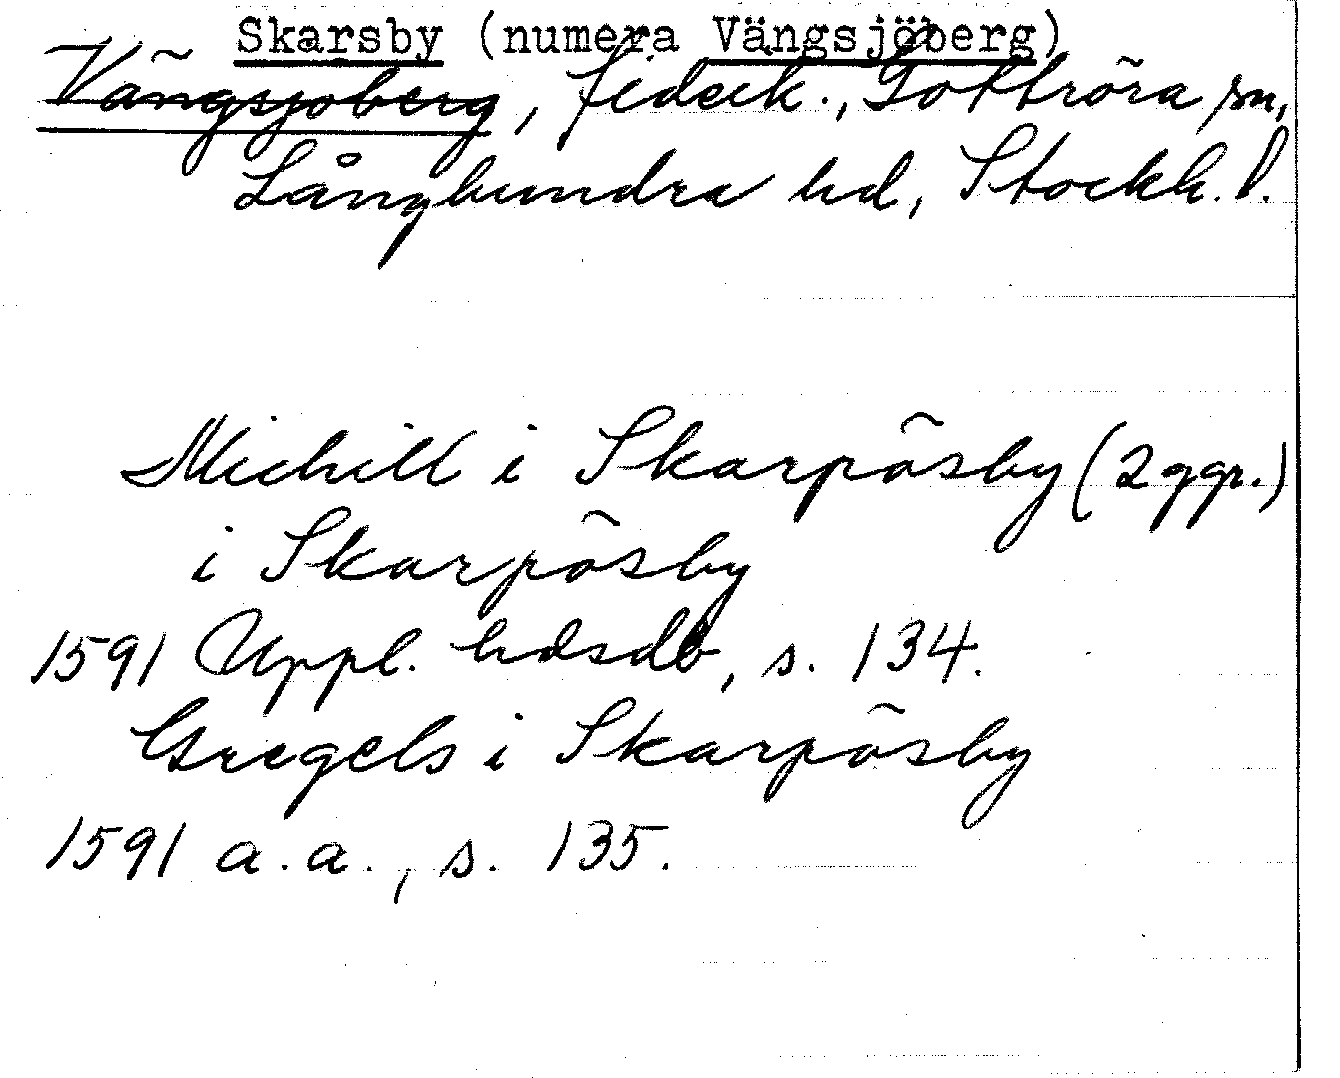 Skarsby (numera Vängsjöberg)
Vängsjöberg, fideik., Gottröra sn,
Långhundra hd, Stockh. l.
Michill i Skarpösby (2 ggr.)
i Skarpösby
1591 Uppl. hdsdb, s. 134.
Gregels i Skarpösby
1591 a.a., s. 135.